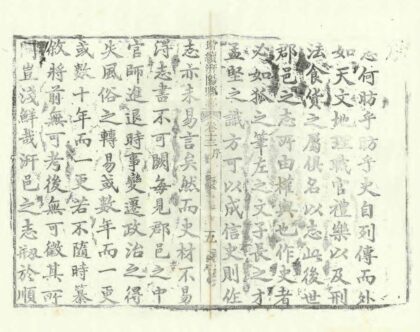 志何昉乎昉乎史自列傳而外
如天文地理職官禮樂以及刑
法食貨之屬俱名以志此後世
郡邑之志所由權輿也作史者
必如狐之筆左之文子長之才
孟堅之識方可以成信史則作
序
五
志亦未易言矣然而史材不易
得志書不可闕每見郡邑之中
官師進退時事變遷政治之得
失風俗之轉易或數年而一更
或數十年而一更若不隨時纂
攸將前無可考後無可徵其所
關豈淺鮮哉汧邑之志刱於順